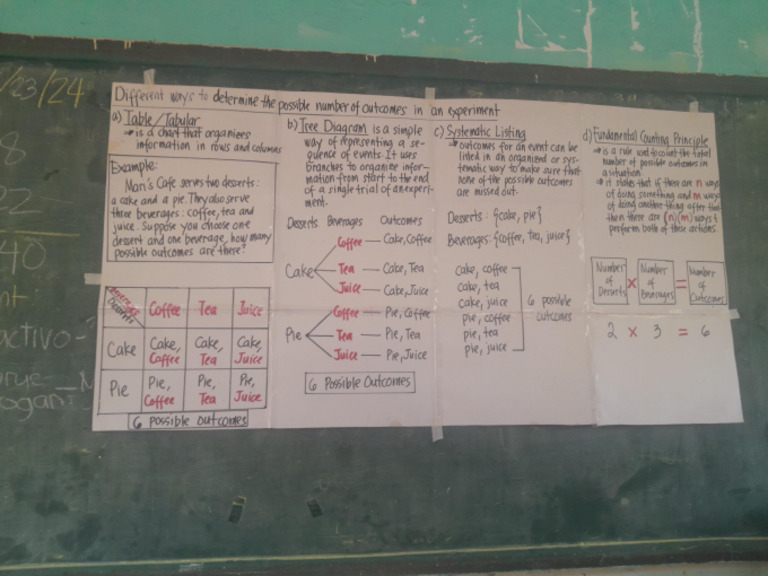 /23/24
8
22
40
nt:
activo-
Different ways to determine the possible number of outcomes in an experiment
a) Table/Tabular
→ is a chart that organizes
information in rows and columns
Example:
Man's Cafe serves two desserts:
a cake and a pie. They also serve
three beverages: coffee, tea and
juice. Suppose you choose one
dessert and one beverage, how many
possible outcomes are there?
Beverages
Desserts
Coffee Tea Juice
Cake Cake, Coffee Cake, Tea Cake, Juice
Pie Pie, Coffee Pie, Tea Pie, Juice
6 possible outcomes
b) Tree Diagram is a simple
way of representing a se-
quence of events. It uses
branches to organize infor-
mation from start to the end
of a single trial of an experi-
ment.
Desserts Beverages Outcomes
Coffee — Cake, Coffee
Cake Tea — Cake, Tea
Juice — Cake, Juice
Coffee — Pie, Coffee
Pie Tea — Pie, Tea
Juice — Pie, Juice
6 Possible Outcomes
c) Systematic Listing
→ outcomes for an event can be
listed in an organized or sys-
tematic way to make sure that
none of the possible outcomes
are missed out.
Desserts: {cake, pie}
Beverages: {coffee, tea, juice}
cake, coffee
cake, tea
cake, juice
pie, coffee
pie, tea
pie, juice
6 possible
outcomes
d) Fundamental Counting Principle
→ is a rule used to count the total
number of possible outcomes in
a situation.
→ it states that if there are n ways
of doing something and m ways
of doing another thing after that
then there are (n)(m) ways to
perform both of these actions.
Number of Desserts × Number of Beverages = Number of Outcomes
2 × 3 = 6